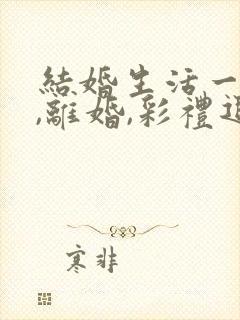 結婚生活一
,離婚,彩禮退
寒非